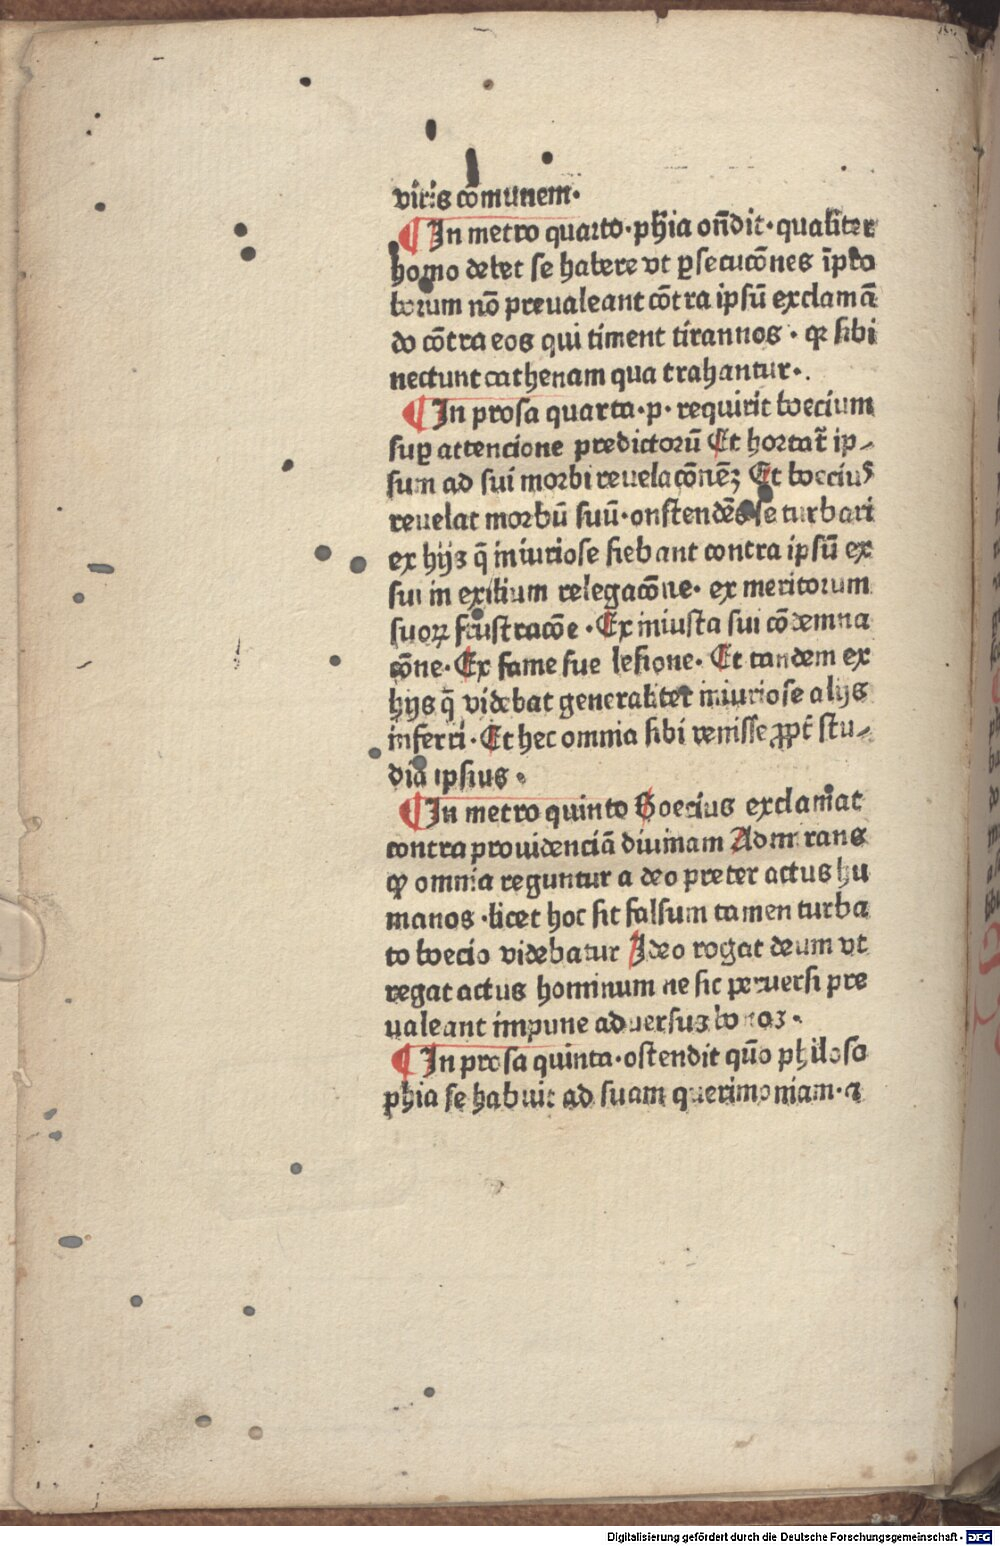 viris cōmunem·
¶ In metro quarto·ph̄ia on̄dit·qualiter
homo debet se habere vt ꝑsecucōnes īpro
borum nō preualeant cōtra ipsū exclamā
do cōtra eos qui timent tirannos · ꝙ sibi
nectunt cathenam qua trahantur·.
¶ In prosa quarta·p· requirit boecium
suꝑ attencione predictorū Et hortat᷑ ip⸗
sum ad sui morbi reuelacōnēꝫ Et boeciuꝰ
reuelat morbū suū·onstendēs se turbari
ex hijs q̄ iniuriose fiebant contra ipsū ex
sui in exilium relegacōne· ex meritorum
suoꝝ frustracōe · Ex iniusta sui cōdemna
cōne· Ex fame sue lesione· Et tandem ex
hijs q̄ videbat generaliter iniuriose alijs
inferri · Et hec omnia sibi venisse ꝓpt̄ stu⸗
dia ipsius ·
¶ In metro quinto Boecius exclamat
contra prouidenciā diuinam Admirans
ꝙ omnia reguntur a deo preter actus hu
manos ·licet hoc sit falsum tamen turba
to boecio videbatur Ideo rogat deum vt
regat actus hominum ne sic peruersi pre
ualeant impune aduersus bonos ·
¶ In prosa quinta·ostendit quō philoso
phia se habuit ad suam querimoniam·a
Digitalisierung gefördert durch die Deutsche Forschungsgemeinschaft - DFG